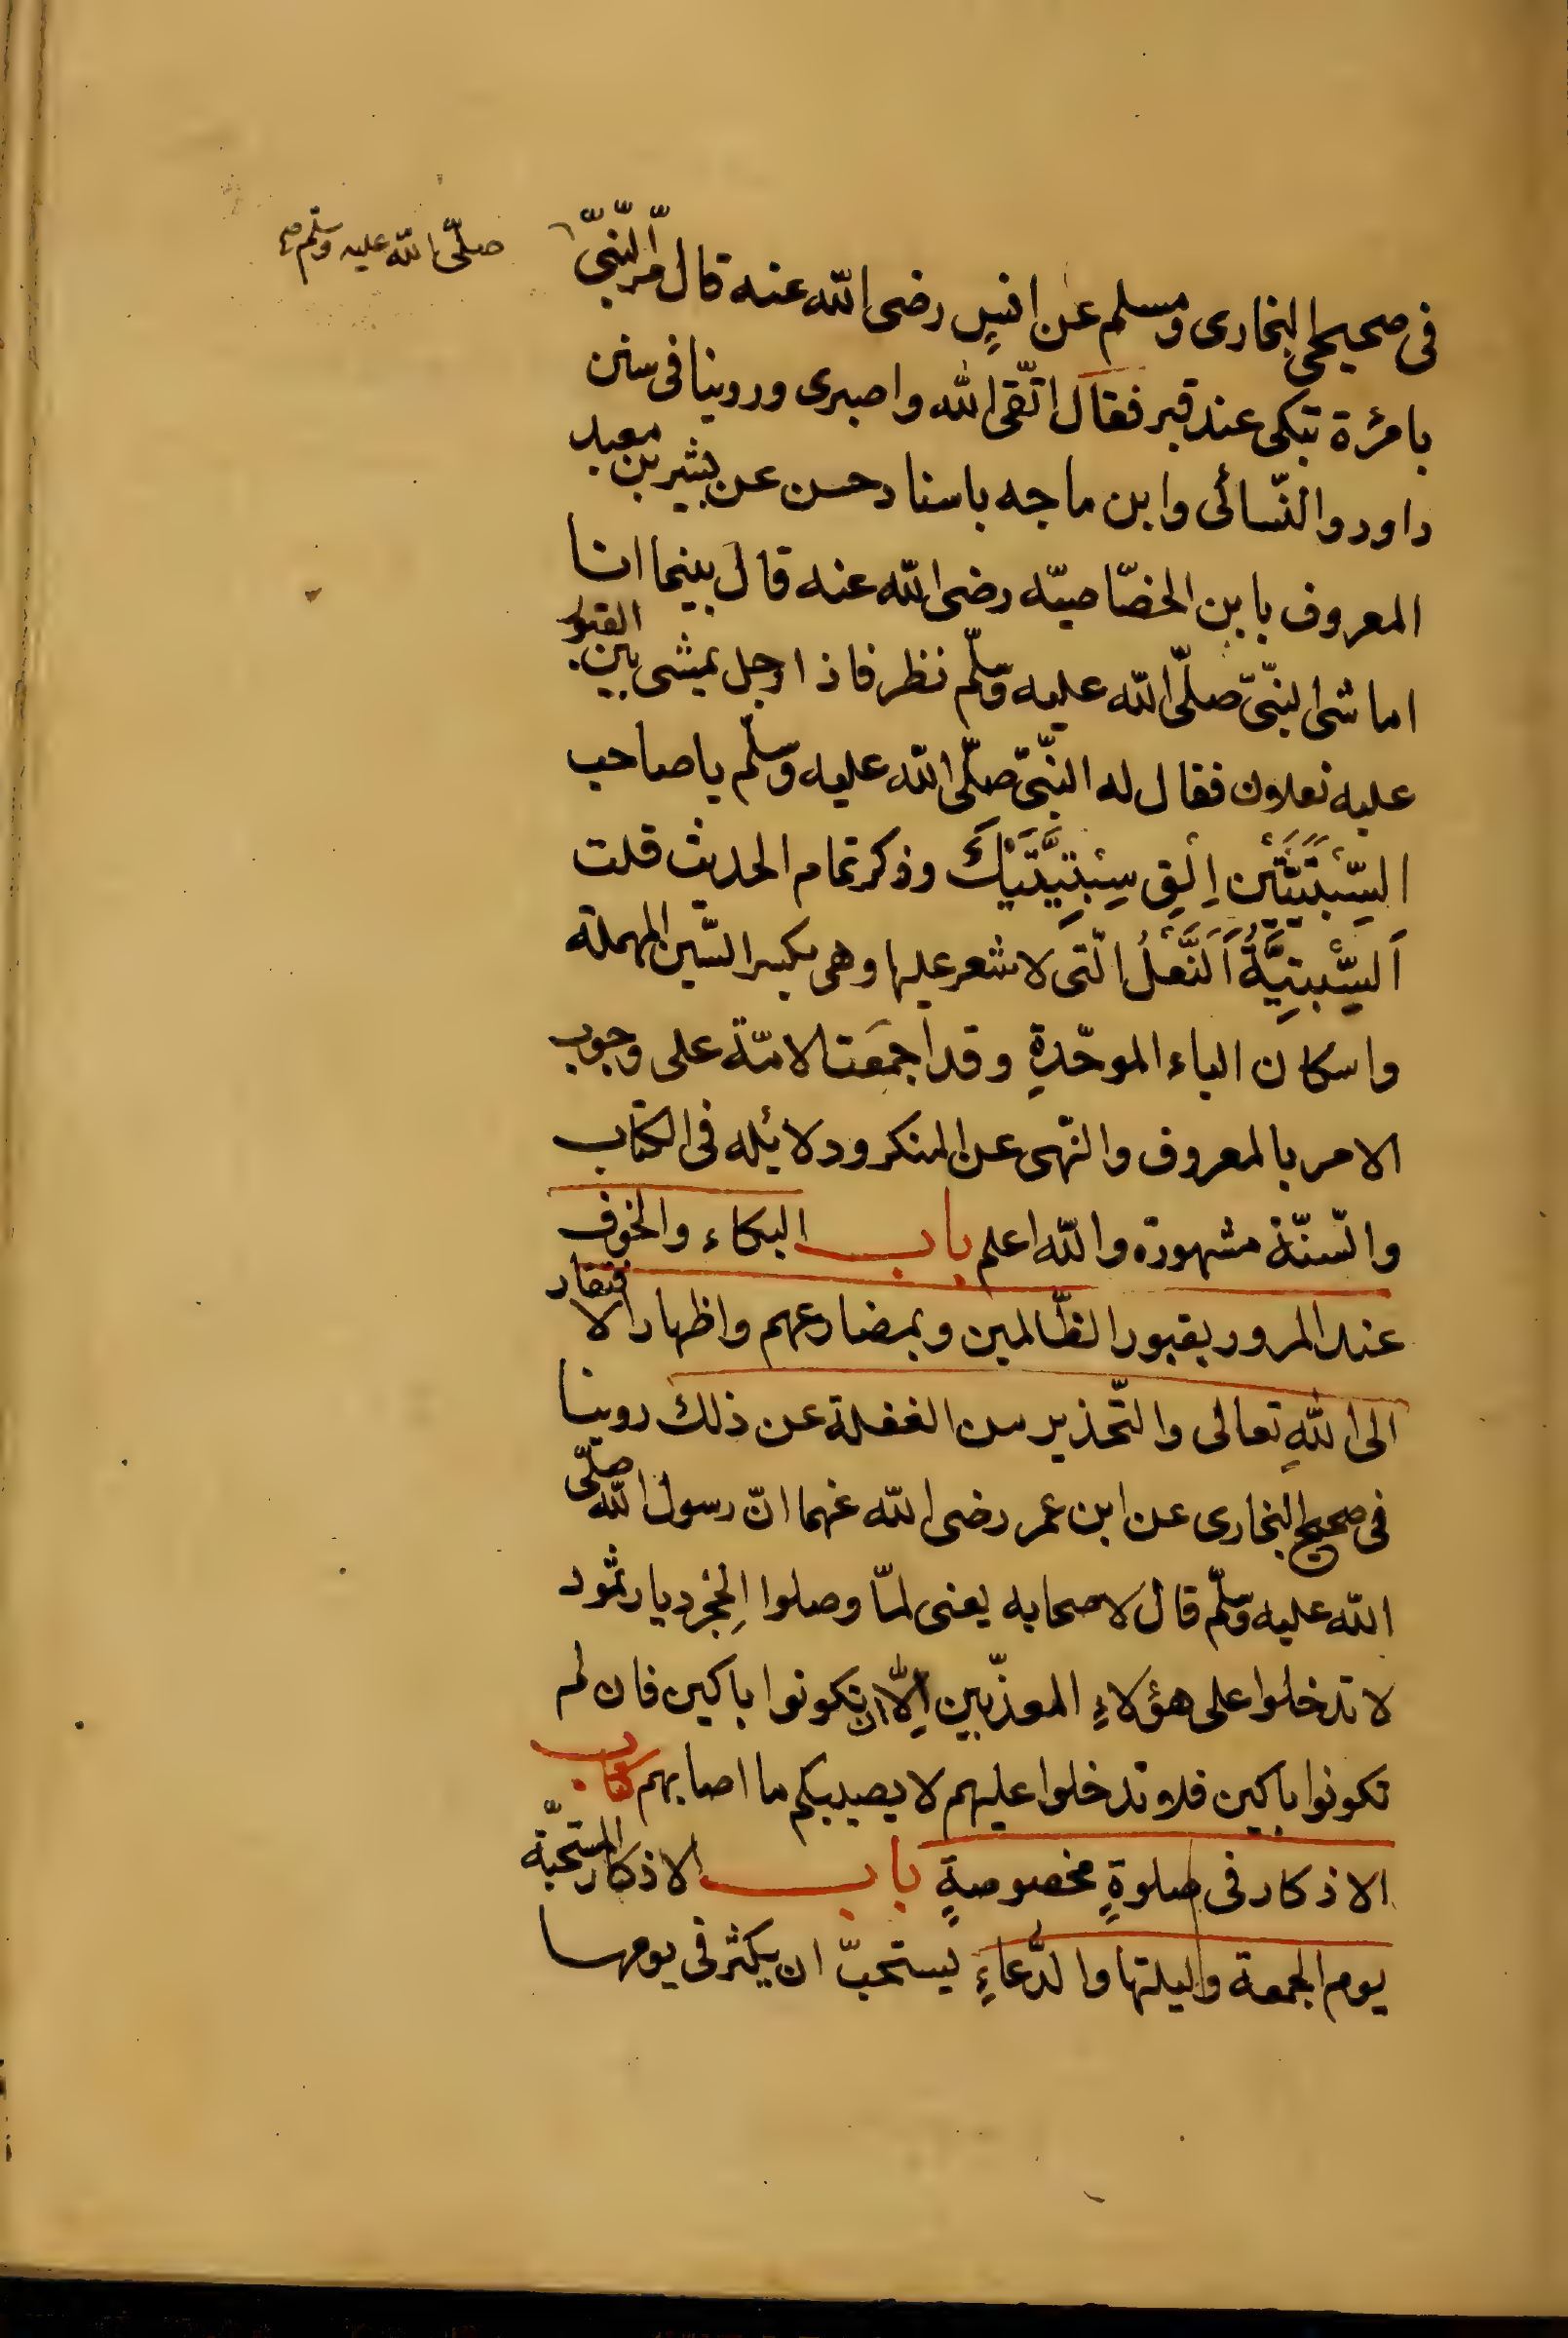 فى صحيحى البخارى ومسلم عن انسٍ رضى الله عنه قال مرّ النّبىّ
صلّى الله عليه وسلّم صح
بامرٔة تبكى عند قبر فقال اتّقى الله واصبرى وروينا فى سنن
داود والنّسائى وابن ماجه باسناد حسن عن بشير بن معبد
المعروف بابن الخصّاصيّه رضى الله عنه قال بينما انا
اماشى النّبىّ صلّى الله عليه وسلّم نظر فاذا رجل يمشى بين القبور
عليه نعلان فقال له النّبىّ صلّى الله عليه وسلّم يا صاحب
السِّبْتِيَّتَيْن اِلَقِ سِبْتِيَّتَيْكَ وذكر تمام الحديث قلت
اَلسِّبْتِيَّةُ اَلنَّعْلُ الّتى لا شعر عليها وهى بكسر السّين المهملة
واسكان الباء الموحّدةِ وقد اجمَعَت الامّة على وجوب
الامر بالمعروف والنّهى عن المنكر ودلائله فى الكتاب
والسّنّة مشهورة والله اعلم باب البكاء والخوف
عند المرور بقبور الظّالمين وبمضارعهم واظهار الافتقار
الى اللهِ تعالى والتّحذير من الغفلة عن ذلك روينا
فى صحيح البخارى عن ابن عمر رضى الله عنهما انّ رسول الله صلّى
الله عليه وسلّم قال لاصحابه يعنى لمّا وصلوا الِحجر ديار ثمود
لا تدخلوا على هؤلاءِ المعذّبين اِلّا ان تكونوا باكين فان لم
تكونوا باكين فلا تدخلوا عليهم لا يصيبكم ما اصابهم كتاب
الاذكار فى صلوةٍ مخصوصةٍ باب الاذكار المستحبّة
يوم الجمعة وليلتها والدّعاءِ يستحبّ ان يكثر فى يومها